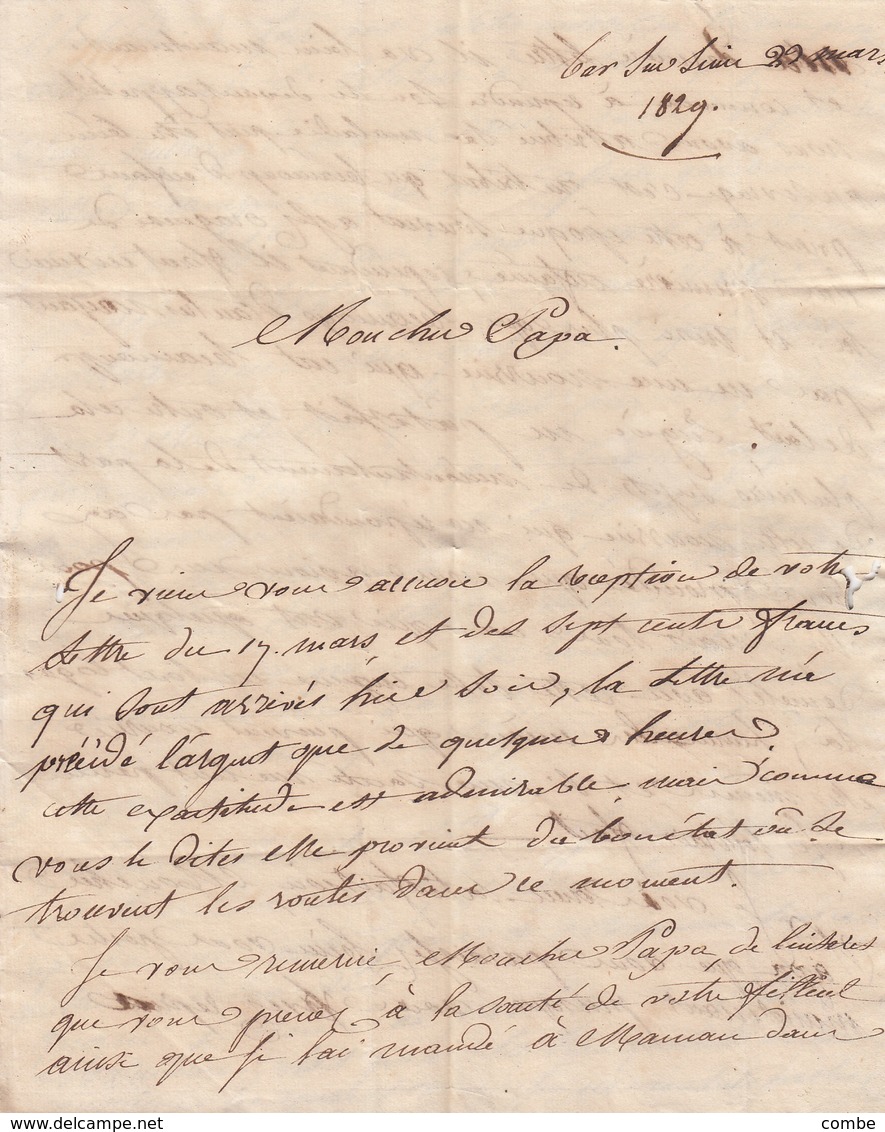 Bar Sur Seine 22 mars
1829.
Mon cher Papa.
Je viens vous accuser la reception de votre
lettre du 17 mars, et des sept cents francs
qui sont arrivés hier soir, la lettre n'a
précédé l'argent que de quelques heures.
cette exactitude est admirable, mais comme
vous le dites elle provient du bon état où se
trouvent les routes dans ce moment.
Je vous remercie, Mon cher Papa, de l'interet
que vous prenez à la santé de votre filleul
ainsi que je l'ai mandé à Maman dans
delcampe.net
combe